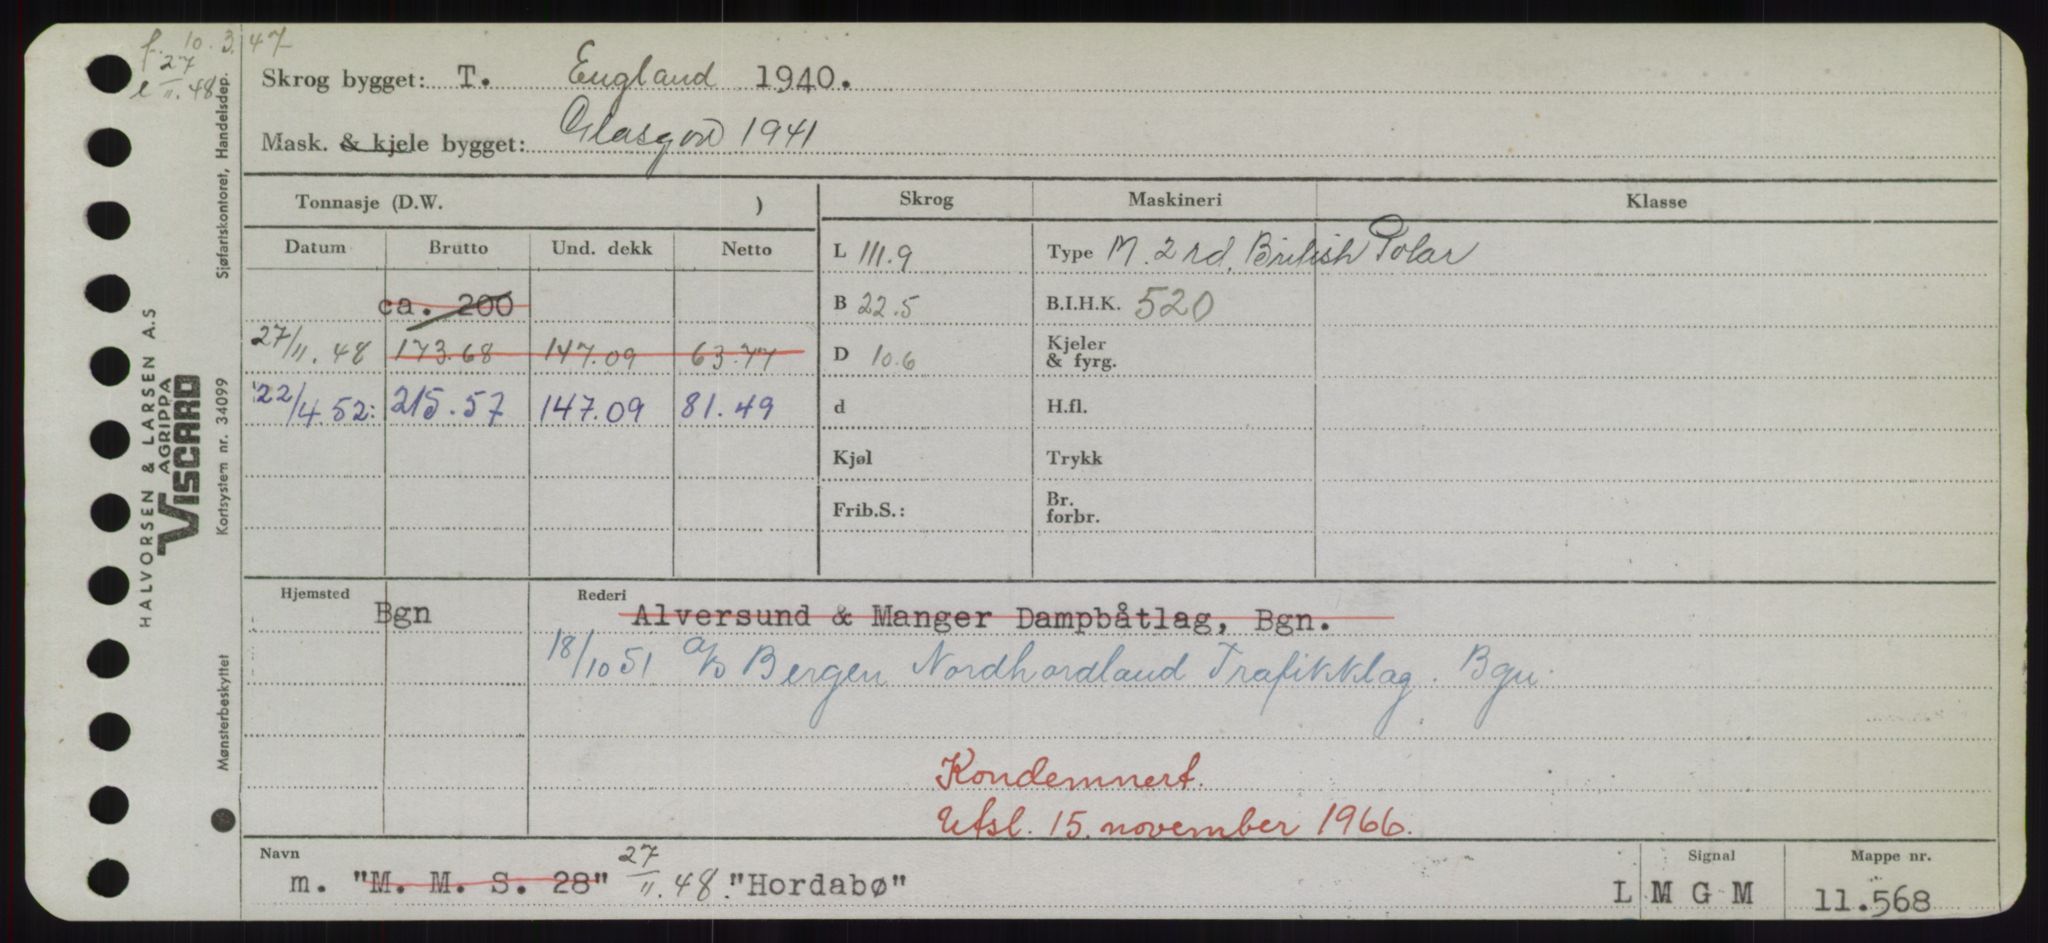 f. 10.3.47
e 27/11.48
Skrog bygget: T. England 1940.
Mask. & kjele bygget: Glasgow 1941
Tonnasje (D.W. )
Skrog Maskineri Klasse
Datum Brutto Und. dekk Netto
L 111.9 Type M. 2 rd. British Polar
ca. 200
B 22.5 B.I.H.K. 520
27/11.48 173.68 147.09 63.77
D 10.6 Kjeler & fyrg.
22/4.52: 215.57 147.09 81.49
d H.fl.
Kjøl Trykk
Frib.S.: Br. forbr.
Hjemsted Bgn Rederi Alversund & Manger Dampbåtlag, Bgn.
18/10 51 a/s Bergen Nordhordland Trafikklag. Bgn.
Kondemnert.
Utsl. 15. november 1966.
Navn Signal Mappe nr.
m. "M. M. S. 28" 27/11.48. "Hordabø" L M G M 11.568
Sjøfartskontoret, Handelsdep.
Kortsystem nr. 34099
Mønsterbeskyttet
HALVORSEN & LARSEN A.S
AGRIPPA
VISCARD